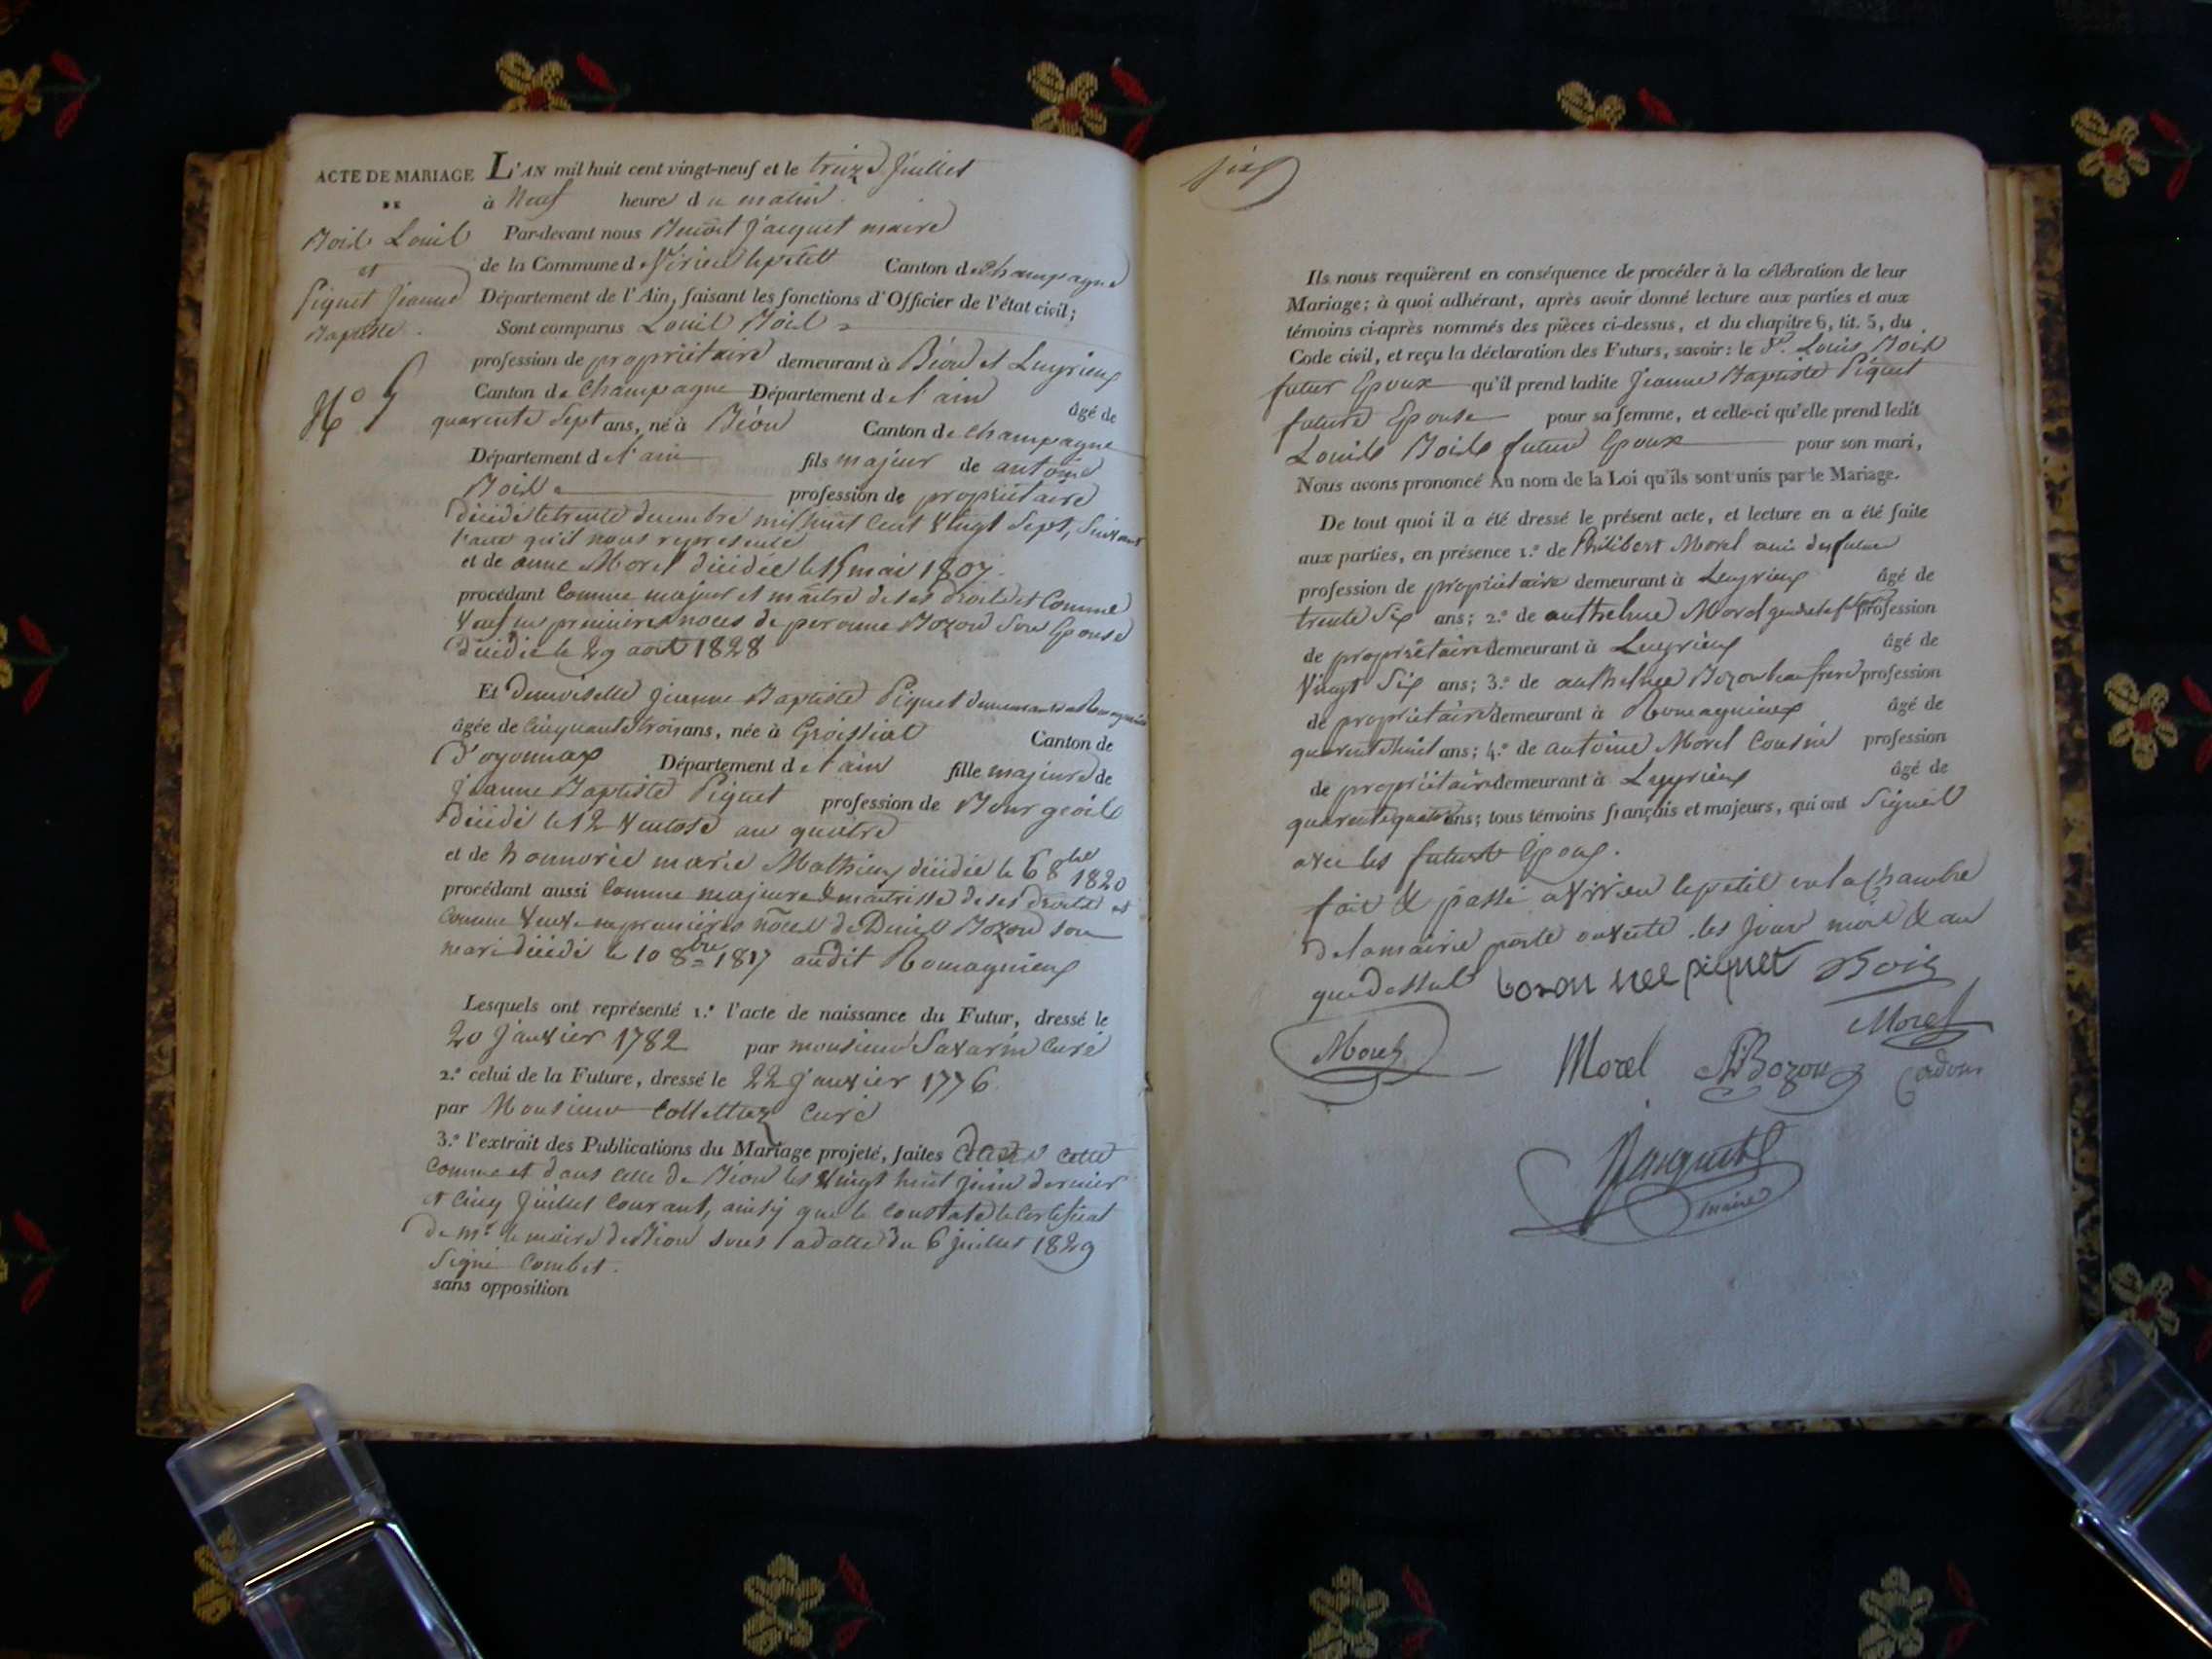 ACTE DE MARIAGE
DE
Bois Louis
et
Piquet Jeanne
Baptiste.
N.º 5
L'AN mil huit cent vingt-neuf et le treize Juillet
à Neuf heure du matin.
Par-devant nous Benoit Jacquet maire
de la Commune de Virieu lepetit Canton de Champagne
Département de l'Ain, faisant les fonctions d'Officier de l'état civil;
Sont comparus Louis Bois
profession de propriétaire demeurant à Béon et Luyrieux
Canton de Champagne Département de l'ain âgé de
quarente Sept ans, né à Béon Canton de Champagne
Département de l'ain fils majeur de antoine
Bois profession de propriétaire
décédé le trente decembre mil huit Cent Vingt Sept, Suivant
l'acte qu'il nous represente
et de anne Morel décédée le 15 mai 1807.
procédant Comme majeur et maître de ses droits et Comme
Veuf en premieres noces de peronne Bozon Son Epouse
décédée le 29 août 1828
Et Demoiselle Jeanne Baptiste Piquet demeurant a Romagnieux
âgée de Cinquante trois ans, née à Groissiat Canton de
D'oyonnax Département de l'ain fille majeure de
Jeanne Baptiste Piquet profession de Bourgeois
décédé le 12 Ventose an quatre
et de honnorée marie Mathieu décédée le 6 8bre 1820
procédant aussi Comme majeure & maitrisse de ses droits et
Comme Veuve en premières noces de Denis Bozon son
mari décédé le 10 8bre 1817 audit Romagnieux
Lesquels ont représenté 1.º l'acte de naissance du Futur, dressé le
20 Janvier 1782 par monsieur Savarin Curé
2.º celui de la Future, dressé le 22 Janvier 1776.
par Monsieur Collettaz Curé
3.º l'extrait des Publications du Mariage projeté, faites dans Cette
Comme et dans celle de Béon les Vingt huit juin dernier
et Cinq Juillet Courant, ainsy que le Constate le Certificat
de mr le maire de Béon sous la datte du 6 juillet 1829
Signé Combet.
sans opposition
six
Ils nous requièrent en conséquence de procéder à la célébration de leur
Mariage; à quoi adhérant, après avoir donné lecture aux parties et aux
témoins ci-après nommés des pièces ci-dessus, et du chapitre 6, tit. 5, du
Code civil, et reçu la déclaration des Futurs, savoir: le Sr. Louis Bois
futur Epoux qu'il prend ladite Jeanne Baptiste Piquet
future Epouse pour sa femme, et celle-ci qu'elle prend ledit
Louis Bois futur Epoux pour son mari,
Nous avons prononcé Au nom de la Loi qu'ils sont unis par le Mariage.
De tout quoi il a été dressé le présent acte, et lecture en a été faite
aux parties, en présence 1.º de Philibert Morel ami du futur
profession de propriétaire demeurant à Luyrieux âgé de
trente Six ans; 2.º de anthelme Morel gendre du futur profession
de propriétaire demeurant à Luyrieux âgé de
Vingt Six ans; 3.º de anthelme Bozon beaufrere profession
de propriétaire demeurant à Romagnieux âgé de
quarente huit ans; 4.º de antoine Morel Cousin profession
de propriétaire demeurant à Luyrieux âgé de
quarente quatre ans; tous témoins français et majeurs, qui ont Signés
avec les futurs Epoux.
fait & passé a Virieu lepetit en la chambre
de la mairie porte ouverte les jour mois & an
que dessus boson nee piquet Bois
Morel
Morel Morel ABozon
Jacquet
maire